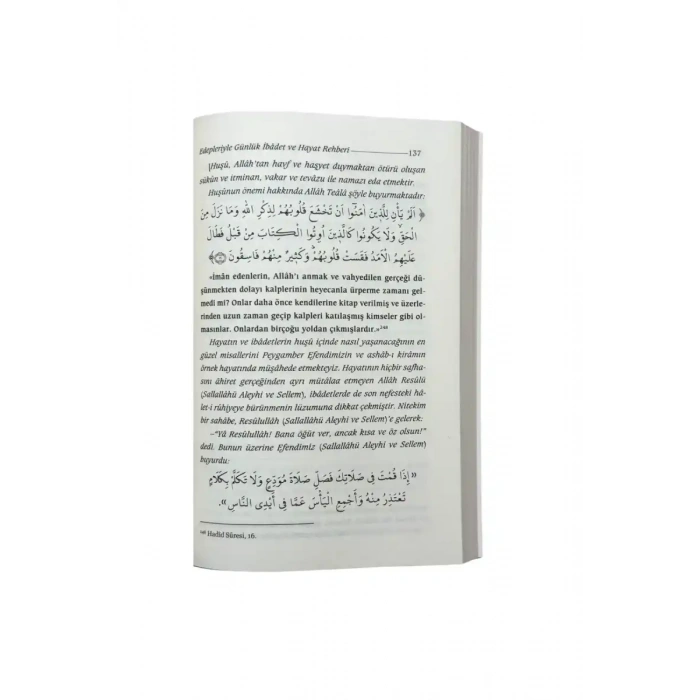 Edepleriyle Günlük İbâdet ve Hayat Rehberi 137
Huşû, Allâh'tan havf ve haşyet duymaktan ötürü oluşan
sükûn ve itminan, vakar ve tevâzu ile namazı eda etmektir.
Huşûnun önemi hakkında Allâh Teâlâ şöyle buyurmaktadır:
﴿ اَلَمْ يَأْنِ لِلَّذ۪ينَ اٰمَنُٓوا اَنْ تَخْشَعَ قُلُوبُهُمْ لِذِكْرِ اللّٰهِ وَمَا نَزَلَ مِنَ
الْحَقِّۙ وَلَا يَكُونُوا كَالَّذ۪ينَ اُو۫تُوا الْكِتَابَ مِنْ قَبْلُ فَطَالَ
عَلَيْهِمُ الْاَمَدُ فَقَسَتْ قُلُوبُهُمْۜ وَكَث۪يرٌ مِنْهُمْ فَاسِقُونَ ﴾
«Îmân edenlerin, Allâh'ı anmak ve vahyedilen gerçeği dü-
şünmekten dolayı kalplerinin heyecanla ürperme zamanı gel-
medi mi? Onlar daha önce kendilerine kitap verilmiş ve üzerle-
rinden uzun zaman geçip kalpleri katılaşmış kimseler gibi ol-
masınlar. Onlardan birçoğu yoldan çıkmışlardır.»²⁴⁸
Hayatın ve ibâdetlerin huşû içinde nasıl yaşanacağının en
güzel misallerini Peygamber Efendimizin ve ashâb-ı kirâmın
örnek hayatında müşâhede etmekteyiz. Hayatının hiçbir safha-
sını âhiret gerçeğinden ayrı mütâlaa etmeyen Allâh Resûlü
(Sallallâhü Aleyhi ve Sellem), ibâdetlerde de son nefesteki hâ-
let-i rûhiyeye bürünmenin lüzumuna dikkat çekmiştir. Nitekim
bir sahâbe, Resûlullâh (Sallallâhü Aleyhi ve Sellem)'e gelerek:
–"Yâ Resûlullâh! Bana öğüt ver, ancak kısa ve öz olsun!"
dedi. Bunun üzerine Efendimiz (Sallallâhü Aleyhi ve Sellem)
buyurdu:
« إِذَا قُمْتَ فِي صَلَاتِكَ فَصَلِّ صَلَاةَ مُوَدِّعٍ وَلَا تَكَلَّمْ بِكَلَامٍ
تَعْتَذِرُ مِنْهُ وَأَجْمِعِ الْيَأْسَ عَمَّا فِي أَيْدِي النَّاسِ ».
²⁴⁸ Hadîd Sûresi, 16.